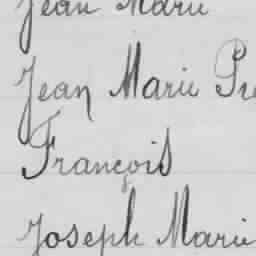 Jean Marie
Jean Marie
François
Joseph Marie